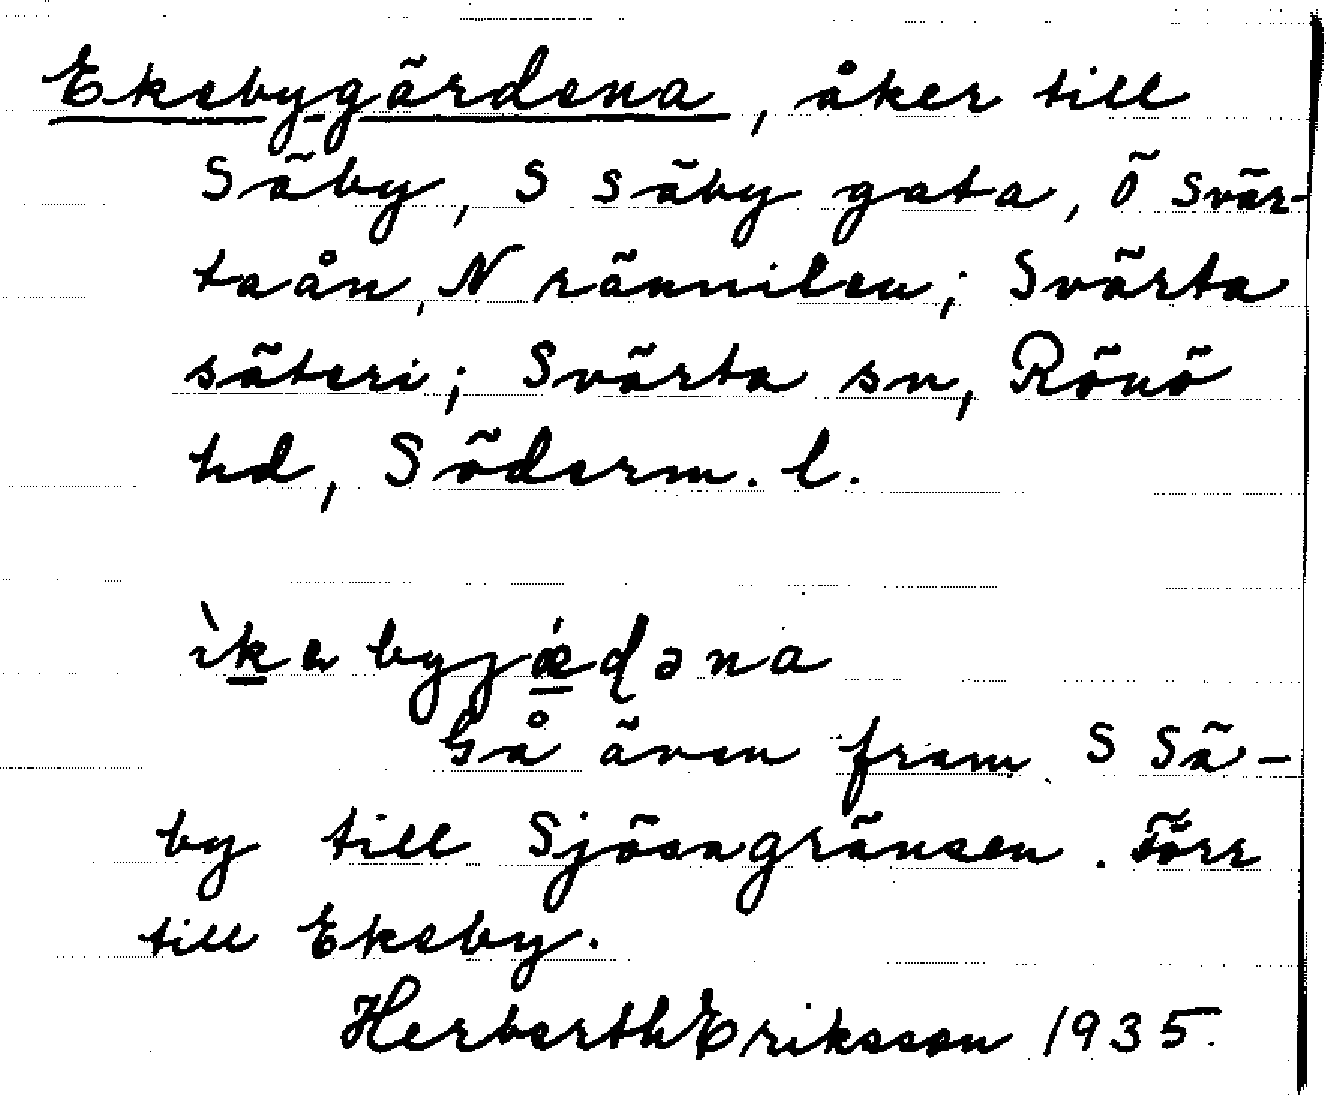 Eksbygärdena, åker till
Säby, S Säby gata, Ö Svär-
taån, N rännilen; Svärta
säteri; Svärta sn, Rönö
hd, Söderm. l.
Gå även fram S Sä-
by till Sjösagränsen. Förr
till Eksby.
Herberth Eriksson 1935.